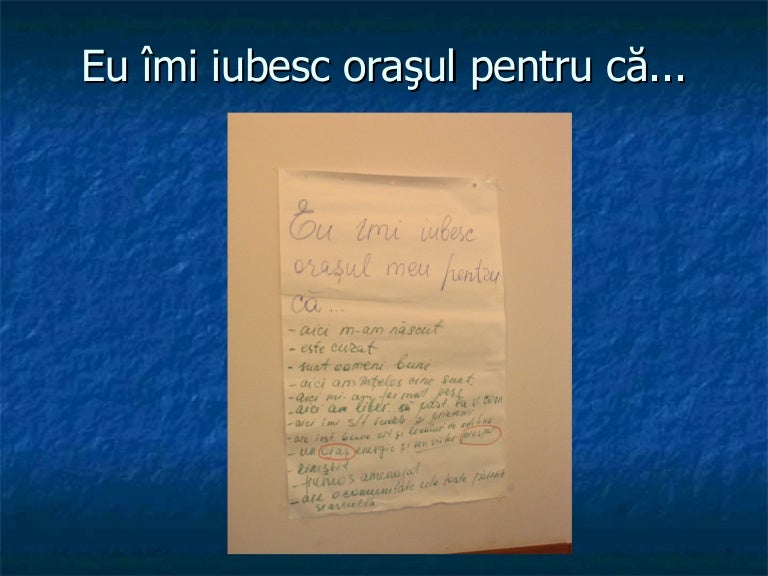 Eu îmi iubesc oraşul pentru că...
Eu îmi iubesc
oraşul meu pentru
că...
- aici m-am născut
- este curat
- sunt oameni buni
- aici am înţeles cine sunt,
- aici mi-am format
- aici am liber să
- aici îmi şi prietenii
- are inst. bune şi locuri de odihnă
- un oraş energic şi un viitor prosper
- liniştit
- frumos amenajat
- are o comunitate cu toate